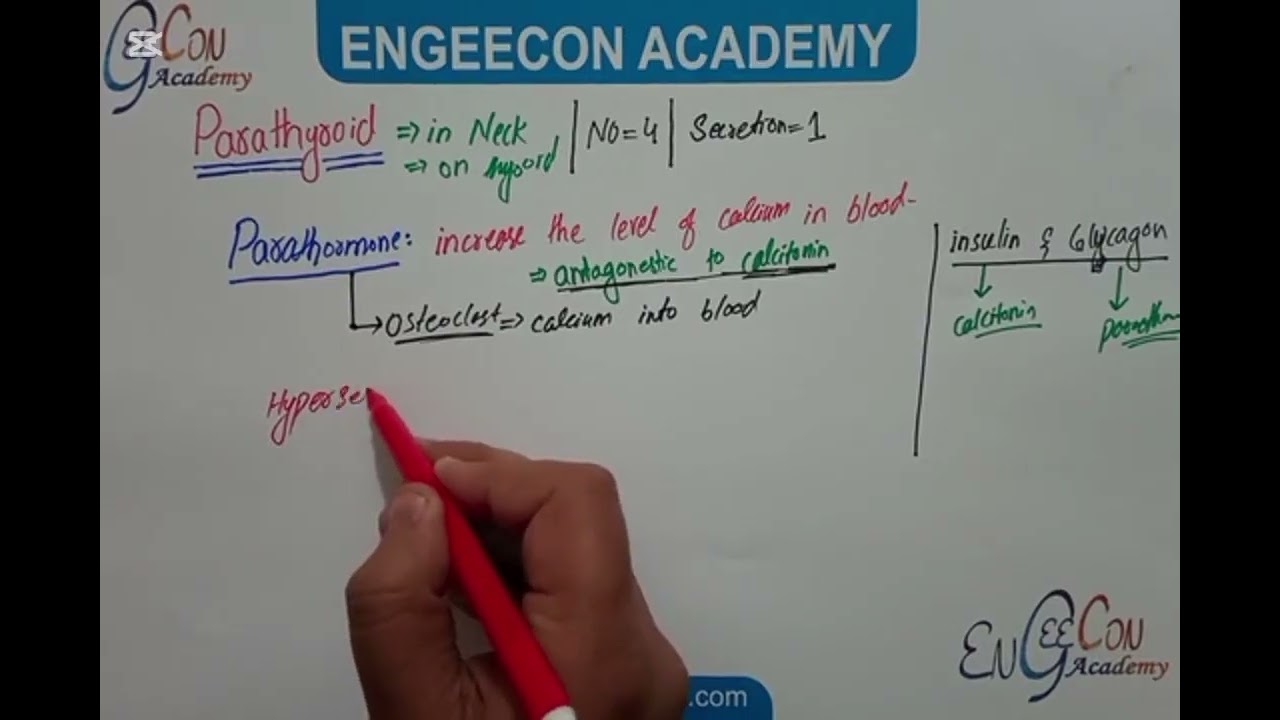 GEECON
Academy
ENGEECON ACADEMY
Parathyroid => in Neck | No = 4 | Secretion = 1
=> on hyoord
Parathormone: increase the level of calcium in blood-
=> antagonestic to calcitonin
Osteoclast => calcium into blood
insulin & Glycagon
calcitonin
Hyperse
ENGEECON
Academy
.com